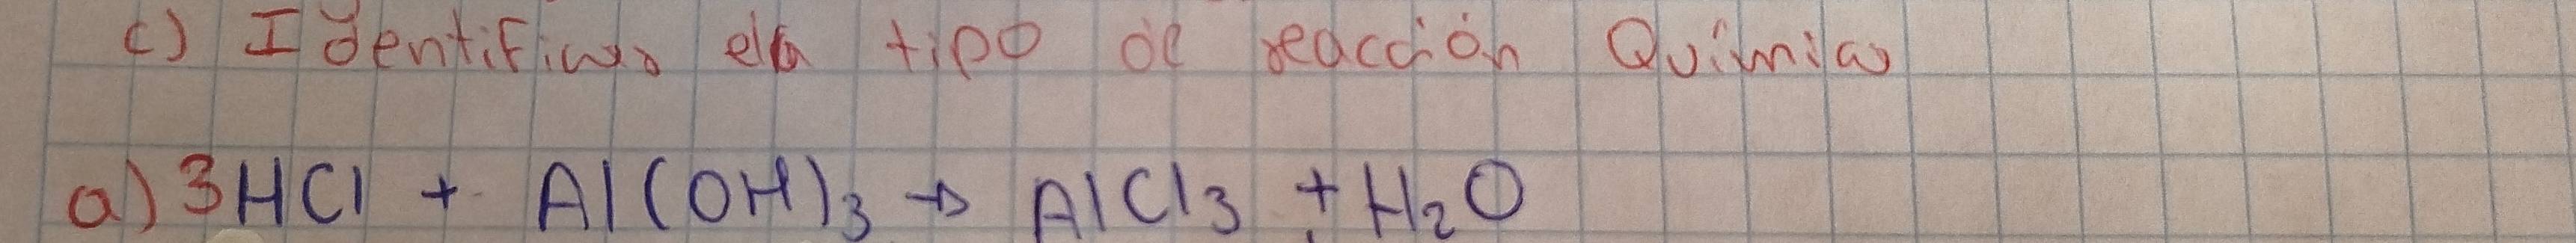 c) Identificar el tipo de reacción Química
a) 3HCl + Al(OH)₃ → AlCl₃ + H₂O